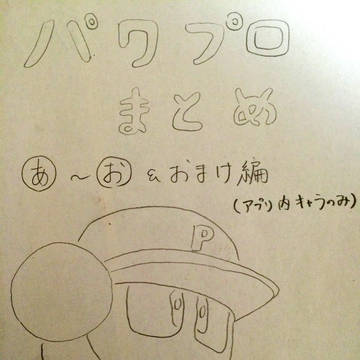 パワプロ
まとめ
あ～お&おまけ編
(アプリ内キャラのみ)
P